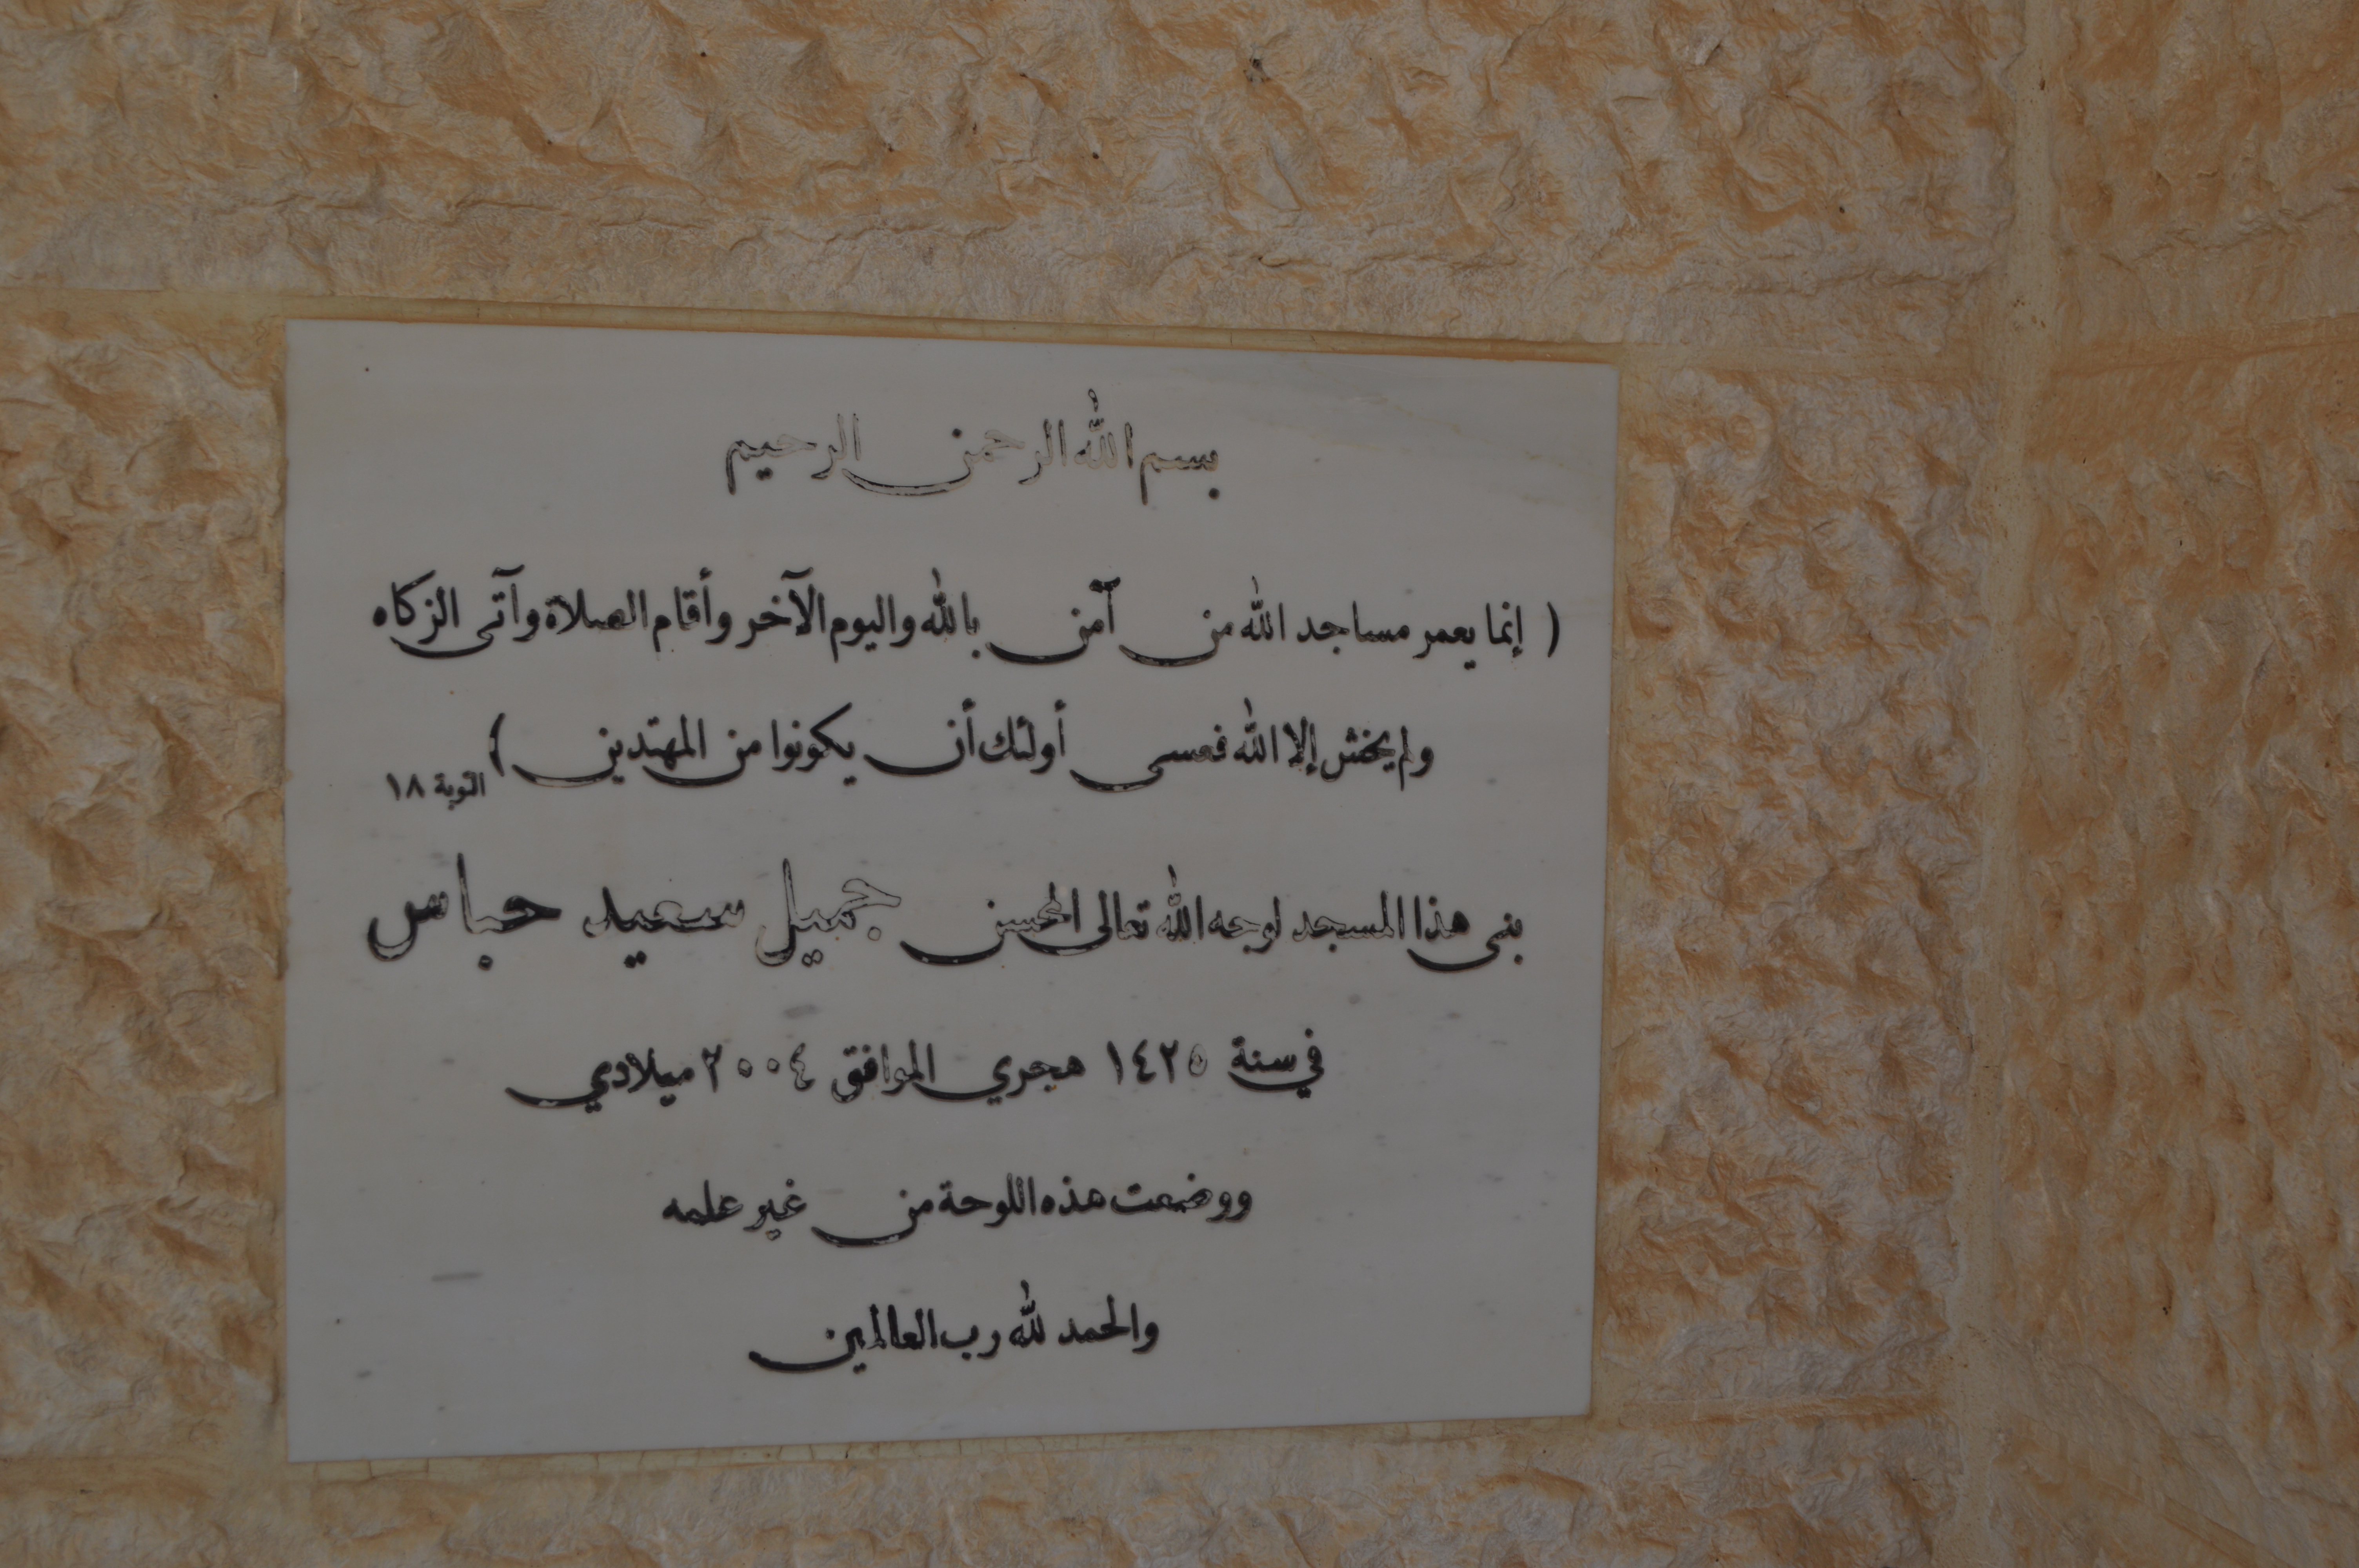 بسم الله الرحمن الرحيم
( إنما يعمر مساجد الله من آمن بالله واليوم الآخر وأقام الصلاة وآتى الزكاه
ولم يخش إلا الله فعسى أولئك أن يكونوا من المهتدين ) التوبة ١٨
بنى هذا المسجد لوجه الله تعالى المحسن جميل سعيد حباس
في سنة ١٤٢٥ هجري الموافق ٢٠٠٤ ميلادي
ووضعت هذه اللوحة من غير علمه
والحمد لله رب العالمين